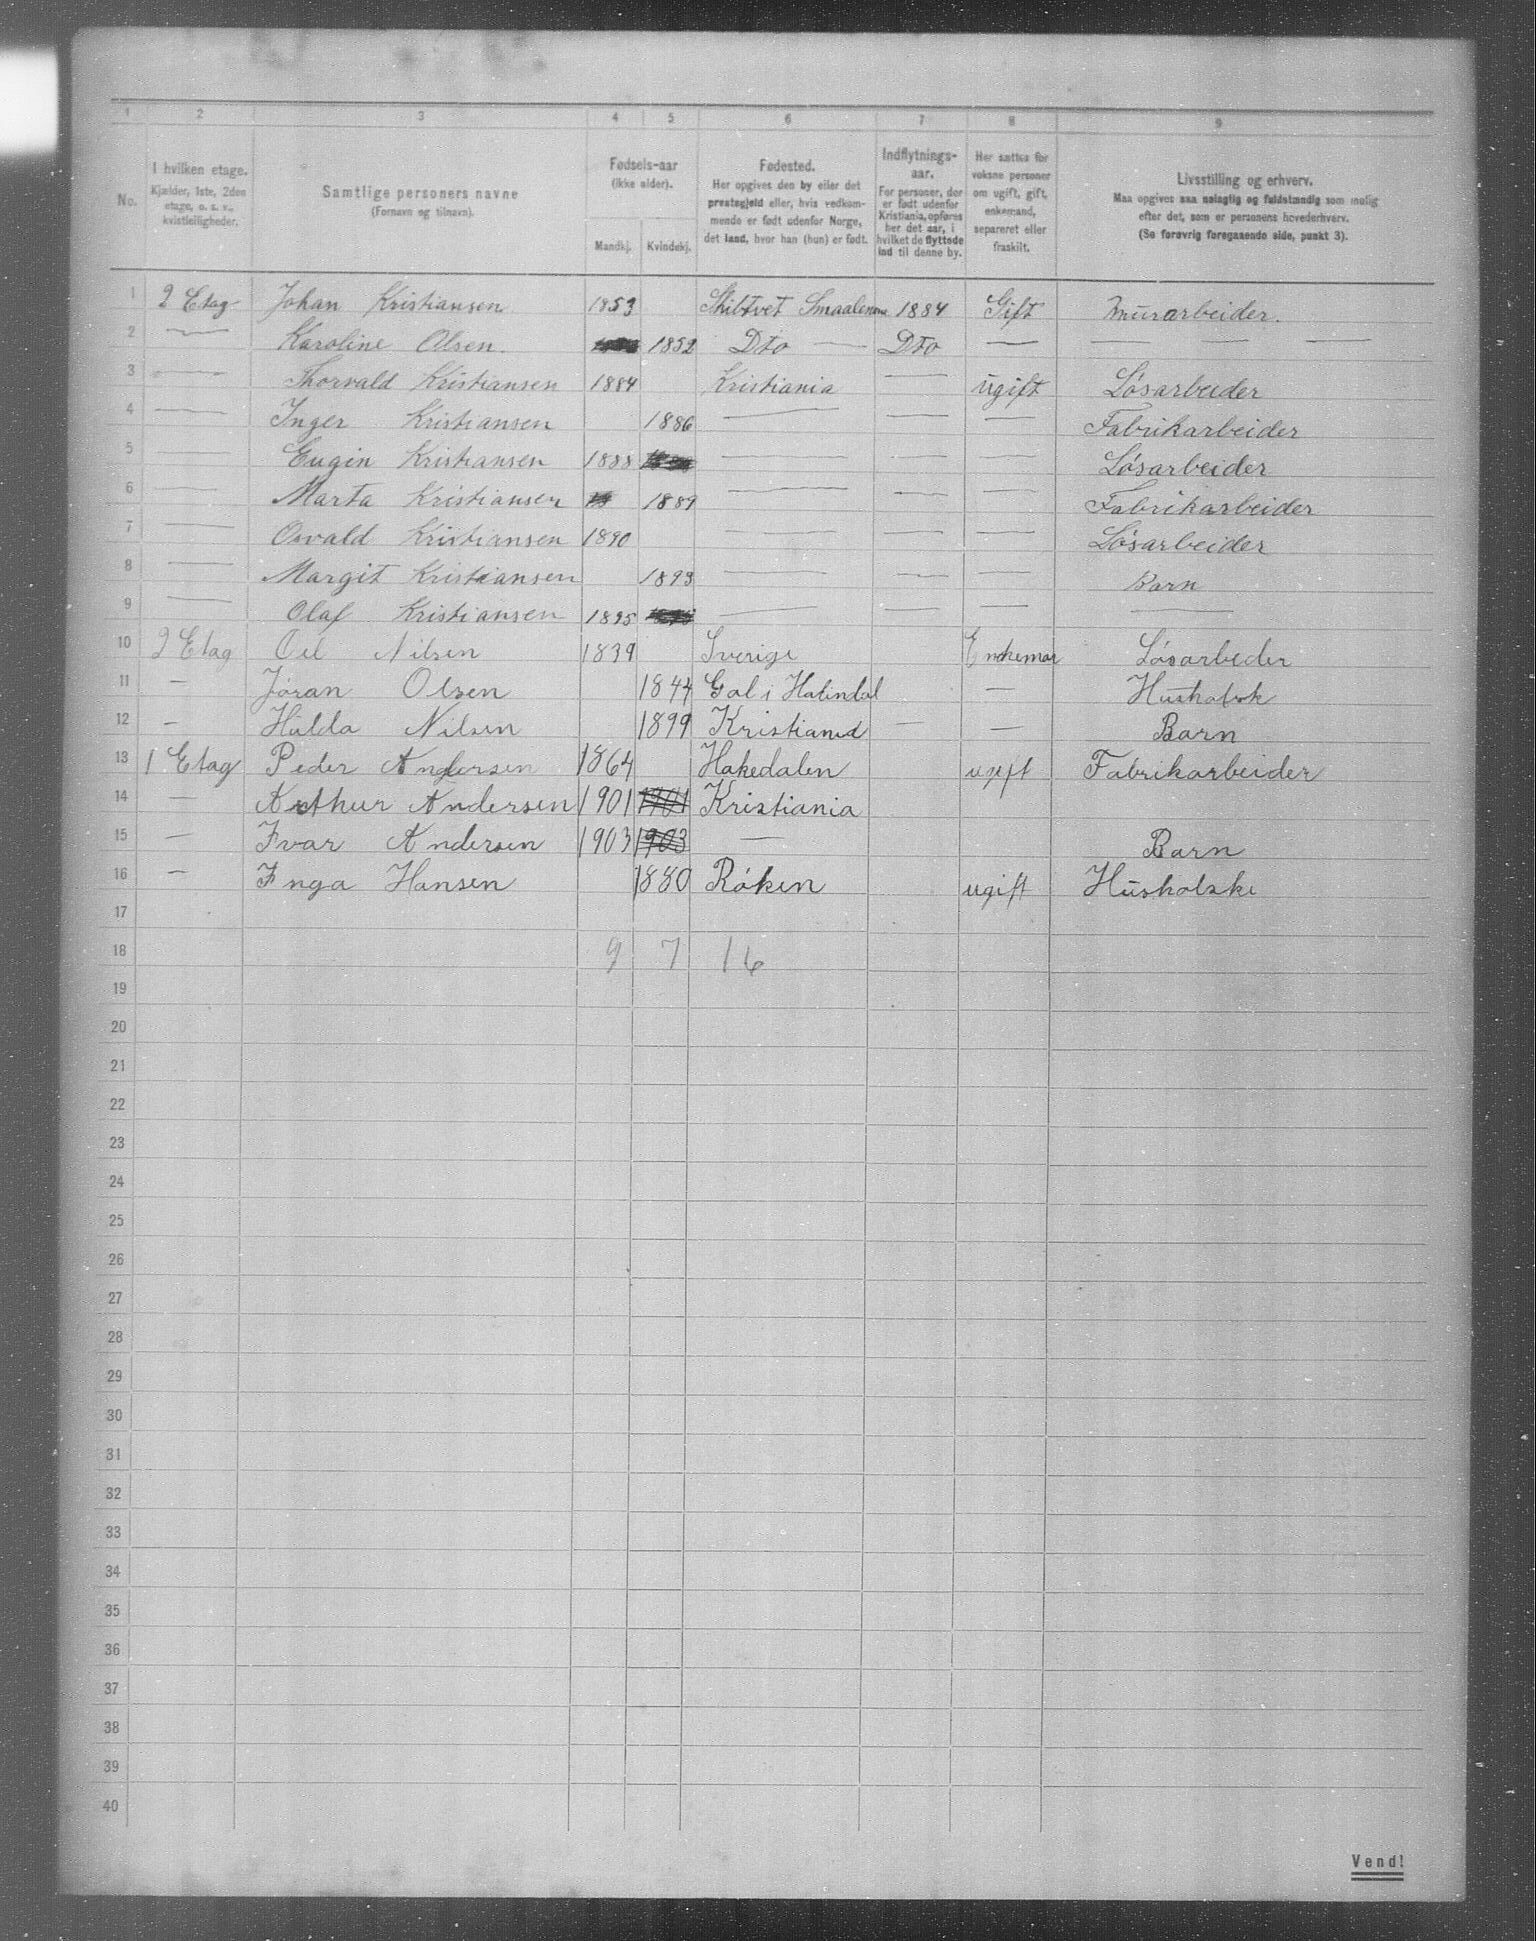 1 2 3 4 5 6 7 8 9
No.
I hvilken etage.
Kjælder, 1ste, 2den
etage, o. s. v.,
kvistleiligheder.
Samtlige personers navne
(Fornavn og tilnavn).
Fødsels-aar
(ikke alder).
Mandkj. Kvindekj.
Fødested.
Her opgives den by eller det
prestegjeld eller, hvis vedkom-
mende er født udenfor Norge,
det land, hvor han (hun) er født.
Indflytnings-
aar.
For personer, der
er født udenfor
Kristiania, opføres
her det aar, i
hvilket de flyttede
ind til denne by.
Her sættes for
voksne personer
om ugift, gift,
enkemand,
separeret eller
fraskilt.
Livsstilling og erhverv.
Maa opgives saa nøiagtig og fuldstændig som mulig
efter det, som er personens hovederhverv.
(Se forøvrig foregaaende side, punkt 3).
1 2 Etag Johan Kristiansen 1853 Skibtvet Smaalenene 1884 Gift Murarbeider.
2 — Karoline Olsen. 1852 Dto — Dto — — — —
3 — Thorvald Kristiansen 1884 Kristiania — ugift Løsarbeider
4 — Inger Kristiansen 1886 — — — Fabrikarbeider
5 — Eugin Kristiansen 1888 — — — Løsarbeider
6 — Marta Kristiansen 1889 — — — Fabrikarbeider
7 — Osvald Kristiansen 1890 — — — Løsarbeider
8 — Margit Kristiansen 1893 — — — Barn
9 — Olaf Kristiansen 1895 — — — —
10 2 Etag Nilsen 1839 Sverige Enkeman Løsarbeder
11 — Jøran Olsen 1844 Gol i Halindal — Husholsk
12 — Hulda Nilsen 1899 Kristiania — — Barn
13 1 Etag Peder Andersen 1864 Hakedalen ugift Fabrikarbeider
14 — Arthur Andersen 1901 1901 Kristiania
15 — Ivar Andersen 1903 1903 — Barn
16 — Inga Hansen 1880 Røken ugift Husholske
17
18 9 7 16
19
20
21
22
23
24
25
26
27
28
29
30
31
32
33
34
35
36
37
38
39
40
Vend!